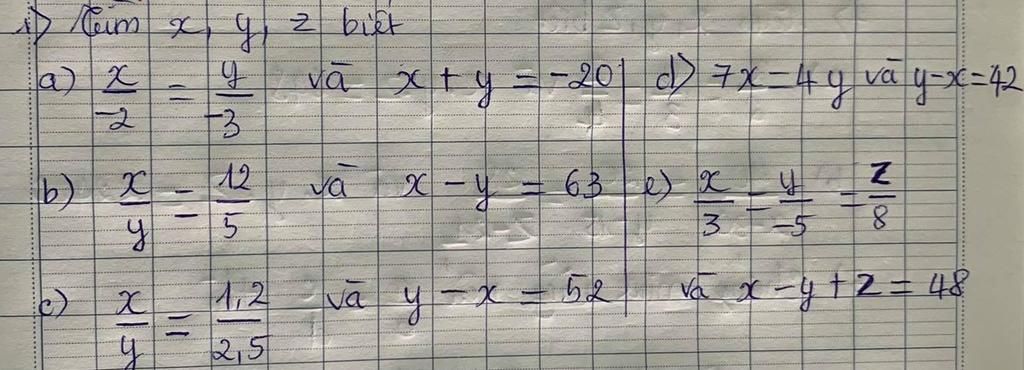 1) Tìm x, y, z biết
a) x/-2 = y/-3 và x + y = -20
b) x/y = 12/5 và x - y = 63
c) x/y = 1,2/2,5 và y - x = 52
d) 7x = 4y và y-x=42
e) x/3 = y/-5 = z/8
và x - y + z = 48